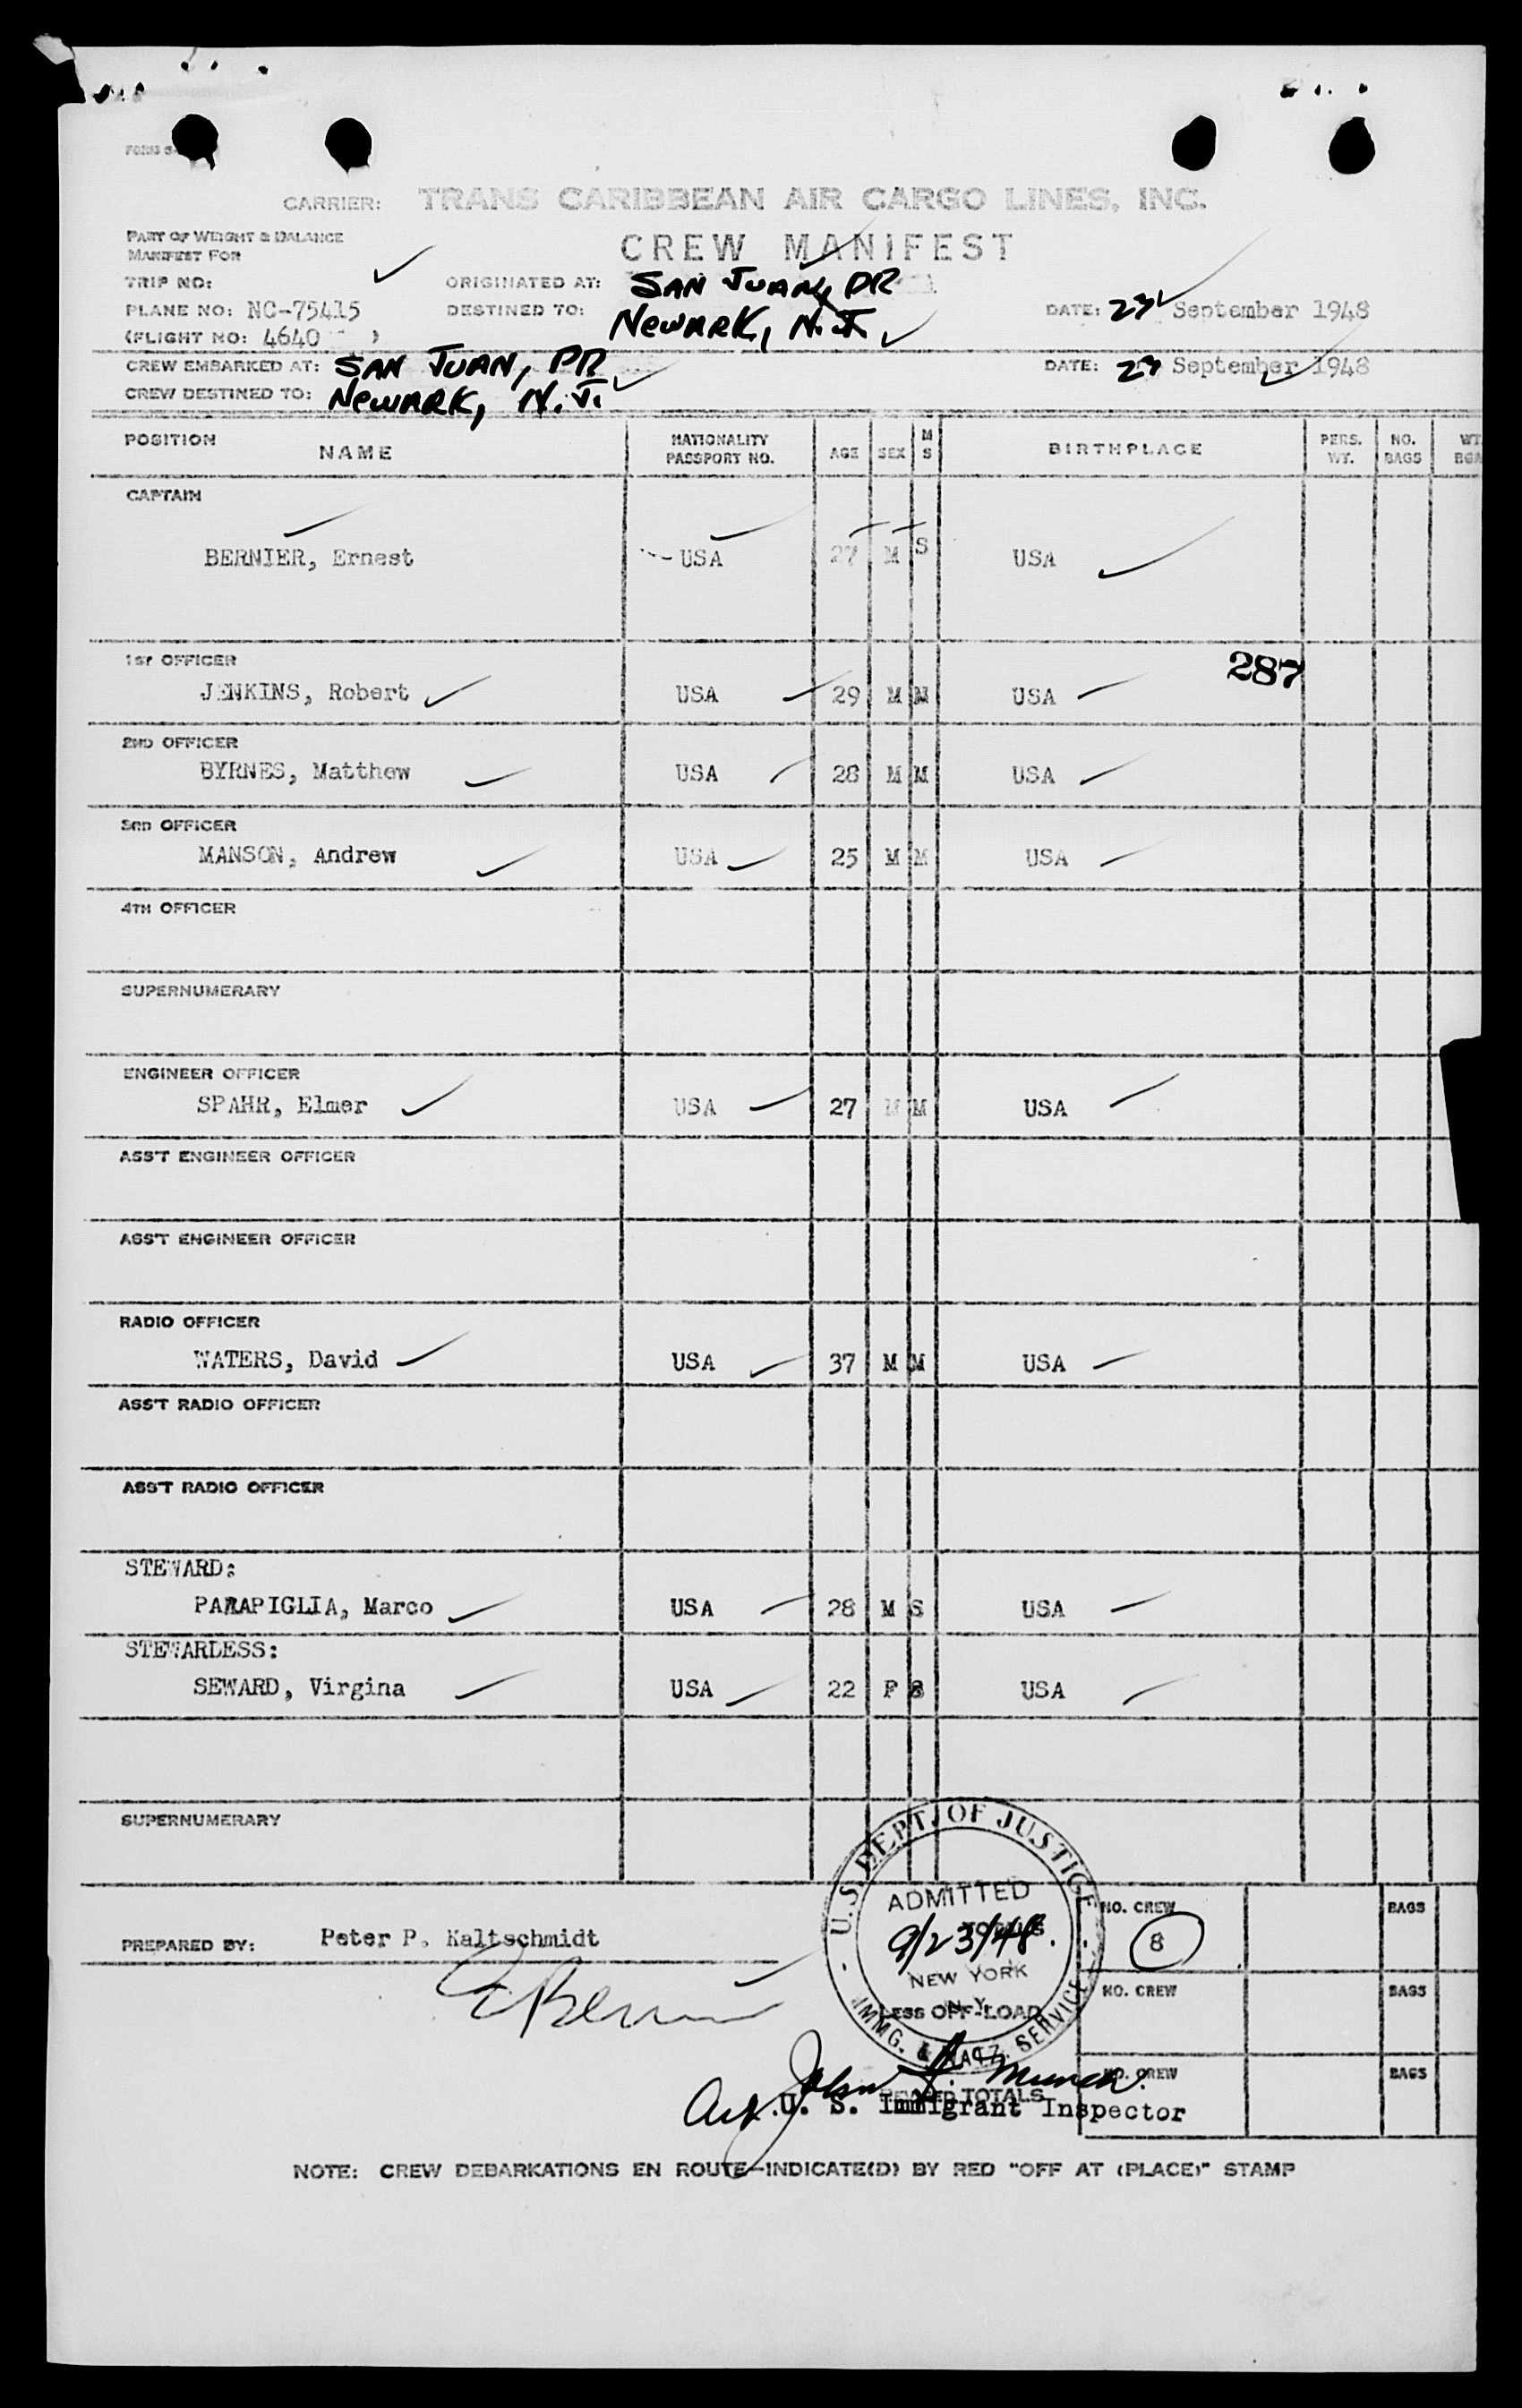 CARRIER: TRANS CARIBBEAN AIR CARGO LINES, INC.
PART OF WEIGHT & BALANCE
MANIFEST FOR
CREW MANIFEST
TRIP NO:
ORIGINATED AT: SAN JUAN, PR
PLANE NO: NC-75415
DESTINED TO: NEWARK, N.J.
DATE: 23 September 1948
(FLIGHT NO: 4640 )
CREW EMBARKED AT: SAN JUAN, PR
DATE: 23 September 1948
CREW DESTINED TO: NEWARK, N.J.
POSITION NAME NATIONALITY PASSPORT NO. AGE SEX M S BIRTHPLACE PERS. WT. NO. BAGS WT.
CAPTAIN
BERNIER, Ernest USA 27 M S USA
1ST OFFICER
287
JENKINS, Robert USA 29 M M USA
2ND OFFICER
BYRNES, Matthew USA 28 M M USA
3RD OFFICER
MANSON, Andrew USA 25 M M USA
4TH OFFICER
SUPERNUMERARY
ENGINEER OFFICER
SPAHR, Elmer USA 27 M M USA
ASS'T ENGINEER OFFICER
ASS'T ENGINEER OFFICER
RADIO OFFICER
WATERS, David USA 37 M M USA
ASS'T RADIO OFFICER
ASS'T RADIO OFFICER
STEWARD:
PARAPIGLIA, Marco USA 28 M S USA
STEWARDESS:
SEWARD, Virgina USA 22 F S USA
SUPERNUMERARY
U.S. DEPT. OF JUSTICE
ADMITTED
TOTALS
9/23/48.
NEW YORK
N.Y.
IMMG. & NATZ. SERVICE
NO. CREW 8 BAGS
PREPARED BY: Peter P. Kaltschmidt
E Bernier
LESS OFF-LOAD
NO. CREW BAGS
NO. CREW BAGS
John
TOTALS
U. S. Immigrant Inspector
NOTE: CREW DEBARKATIONS EN ROUTE—INDICATE(D) BY RED "OFF AT (PLACE)" STAMP